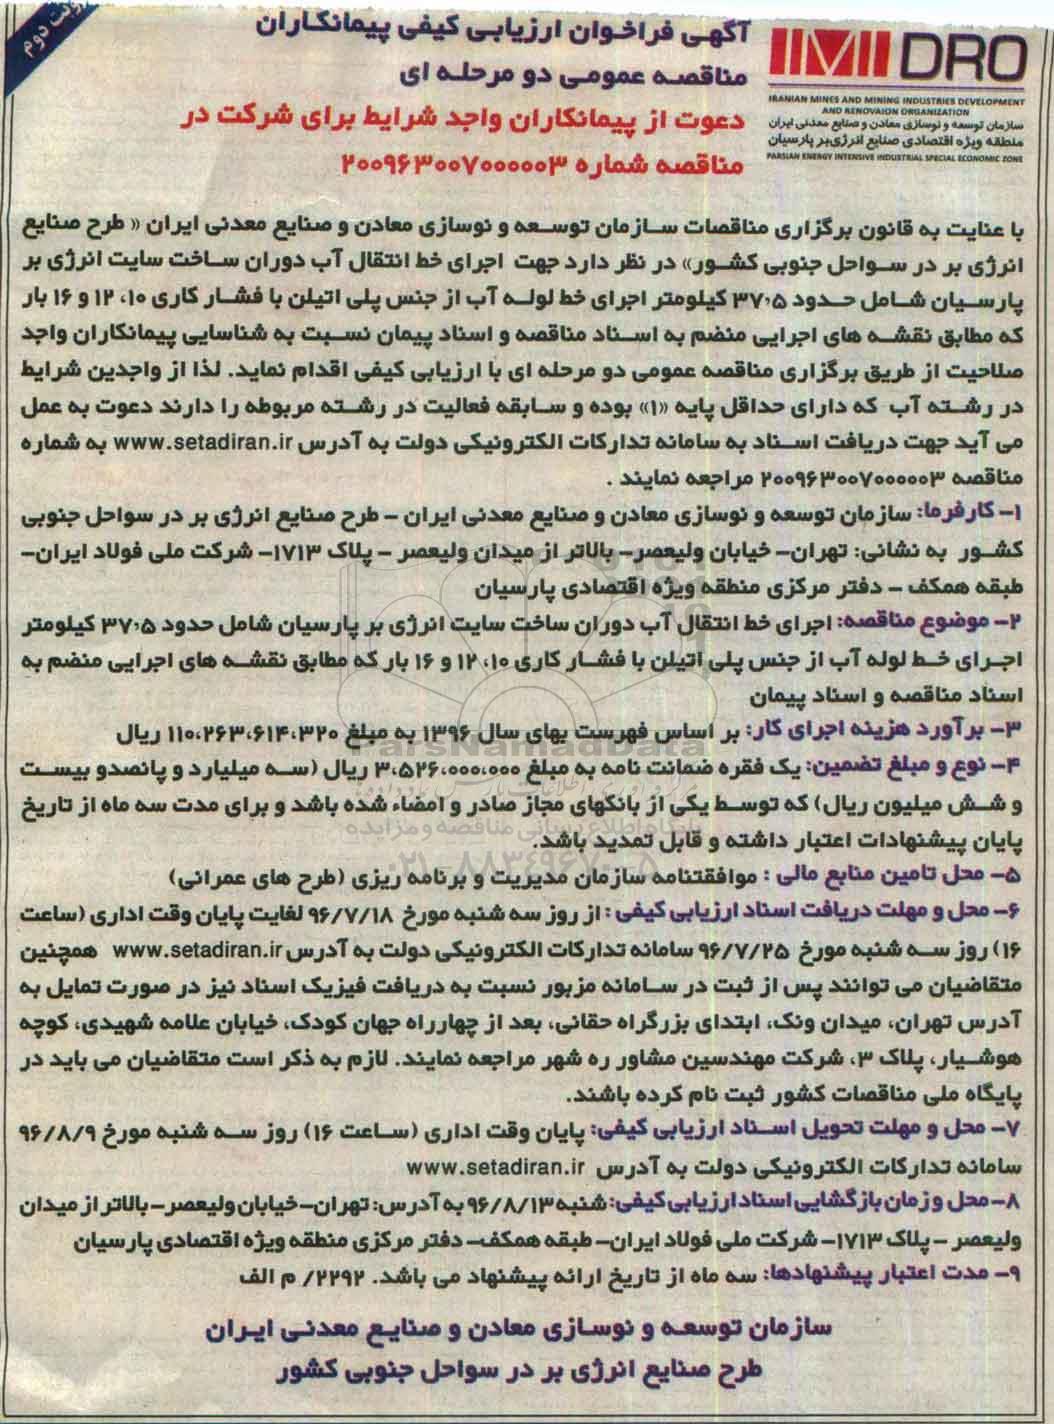 نوبت دوم
IMIDRO
IRANIAN MINES AND MINING INDUSTRIES DEVELOPMENT
AND RENOVAION ORGANIZATION
سازمان توسعه و نوسازی معادن و صنایع معدنی ایران
منطقه ویژه اقتصادی صنایع انرژی‌بر پارسیان
PARSIAN ENERGY INTENSIVE INDUSTRIAL SPECIAL ECONOMIC ZONE
آگهی فراخوان ارزیابی کیفی پیمانکاران
مناقصه عمومی دو مرحله ای
دعوت از پیمانکاران واجد شرایط برای شرکت در
مناقصه شماره ۲۰۰۹۶۳۰۰۷۰۰۰۰۰۳
با عنایت به قانون برگزاری مناقصات سازمان توسعه و نوسازی معادن و صنایع معدنی ایران « طرح صنایع
انرژی بر در سواحل جنوبی کشور» در نظر دارد جهت اجرای خط انتقال آب دوران ساخت سایت انرژی بر
پارسیان شامل حدود ۳۷٫۵ کیلومتر اجرای خط لوله آب از جنس پلی اتیلن با فشار کاری ۱۰، ۱۲ و ۱۶ بار
که مطابق نقشه های اجرایی منضم به اسناد مناقصه و اسناد پیمان نسبت به شناسایی پیمانکاران واجد
صلاحیت از طریق برگزاری مناقصه عمومی دو مرحله ای با ارزیابی کیفی اقدام نماید. لذا از واجدین شرایط
در رشته آب که دارای حداقل پایه «۱» بوده و سابقه فعالیت در رشته مربوطه را دارند دعوت به عمل
می آید جهت دریافت اسناد به سامانه تدارکات الکترونیکی دولت به آدرس www.setadiran.ir به شماره
مناقصه ۲۰۰۹۶۳۰۰۷۰۰۰۰۰۳ مراجعه نمایند .
۱- کارفرما: سازمان توسعه و نوسازی معادن و صنایع معدنی ایران - طرح صنایع انرژی بر در سواحل جنوبی
کشور به نشانی: تهران- خیابان ولیعصر- بالاتر از میدان ولیعصر - پلاک ۱۷۱۳- شرکت ملی فولاد ایران-
طبقه همکف - دفتر مرکزی منطقه ویژه اقتصادی پارسیان
۲- موضوع مناقصه: اجرای خط انتقال آب دوران ساخت سایت انرژی بر پارسیان شامل حدود ۳۷٫۵ کیلومتر
اجرای خط لوله آب از جنس پلی اتیلن با فشار کاری ۱۰، ۱۲ و ۱۶ بار که مطابق نقشه های اجرایی منضم به
اسناد مناقصه و اسناد پیمان
۳- برآورد هزینه اجرای کار: بر اساس فهرست بهای سال ۱۳۹۶ به مبلغ ۱۱۰،۲۶۳،۶۱۴،۳۲۰ ریال
۴- نوع و مبلغ تضمین: یک فقره ضمانت نامه به مبلغ ۳،۵۲۶،۰۰۰،۰۰۰ ریال (سه میلیارد و پانصدو بیست
و شش میلیون ریال) که توسط یکی از بانکهای مجاز صادر و امضاء شده باشد و برای مدت سه ماه از تاریخ
پایان پیشنهادات اعتبار داشته و قابل تمدید باشد.
۵- محل تامین منابع مالی : موافقتنامه سازمان مدیریت و برنامه ریزی (طرح های عمرانی)
۶- محل و مهلت دریافت اسناد ارزیابی کیفی : از روز سه شنبه مورخ ۹۶/۷/۱۸ لغایت پایان وقت اداری (ساعت
۱۶) روز سه شنبه مورخ ۹۶/۷/۲۵ سامانه تدارکات الکترونیکی دولت به آدرس www.setadiran.ir همچنین
متقاضیان می توانند پس از ثبت در سامانه مزبور نسبت به دریافت فیزیک اسناد نیز در صورت تمایل به
آدرس تهران، میدان ونک، ابتدای بزرگراه حقانی، بعد از چهارراه جهان کودک، خیابان علامه شهیدی، کوچه
هوشیار، پلاک ۳، شرکت مهندسین مشاور ره شهر مراجعه نمایند. لازم به ذکر است متقاضیان می باید در
پایگاه ملی مناقصات کشور ثبت نام کرده باشند.
۷- محل و مهلت تحویل اسناد ارزیابی کیفی: پایان وقت اداری (ساعت ۱۶) روز سه شنبه مورخ ۹۶/۸/۹
سامانه تدارکات الکترونیکی دولت به آدرس www.setadiran.ir
۸- محل و زمان بازگشایی اسناد ارزیابی کیفی: شنبه ۹۶/۸/۱۳ به آدرس: تهران- خیابان ولیعصر- بالاتر از میدان
ولیعصر - پلاک ۱۷۱۳- شرکت ملی فولاد ایران- طبقه همکف- دفتر مرکزی منطقه ویژه اقتصادی پارسیان
۹- مدت اعتبار پیشنهادها: سه ماه از تاریخ ارائه پیشنهاد می باشد. ۲۲۹۲/ م الف
سازمان توسعه و نوسازی معادن و صنایع معدنی ایران
طرح صنایع انرژی بر در سواحل جنوبی کشور
ParsNamadData
پایگاه اطلاع رسانی مناقصه و مزایده
۰۲۱-۸۸۳۴۹۶۷۰-۵